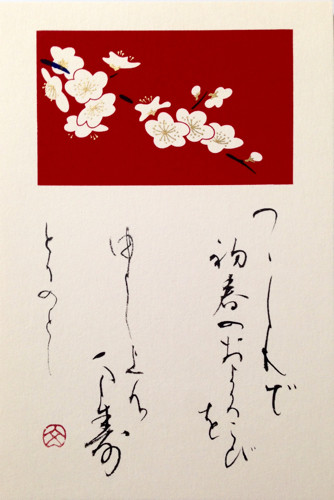 つゝしんで
初春のおよろこびを
申し上げ
寿
とりのとし